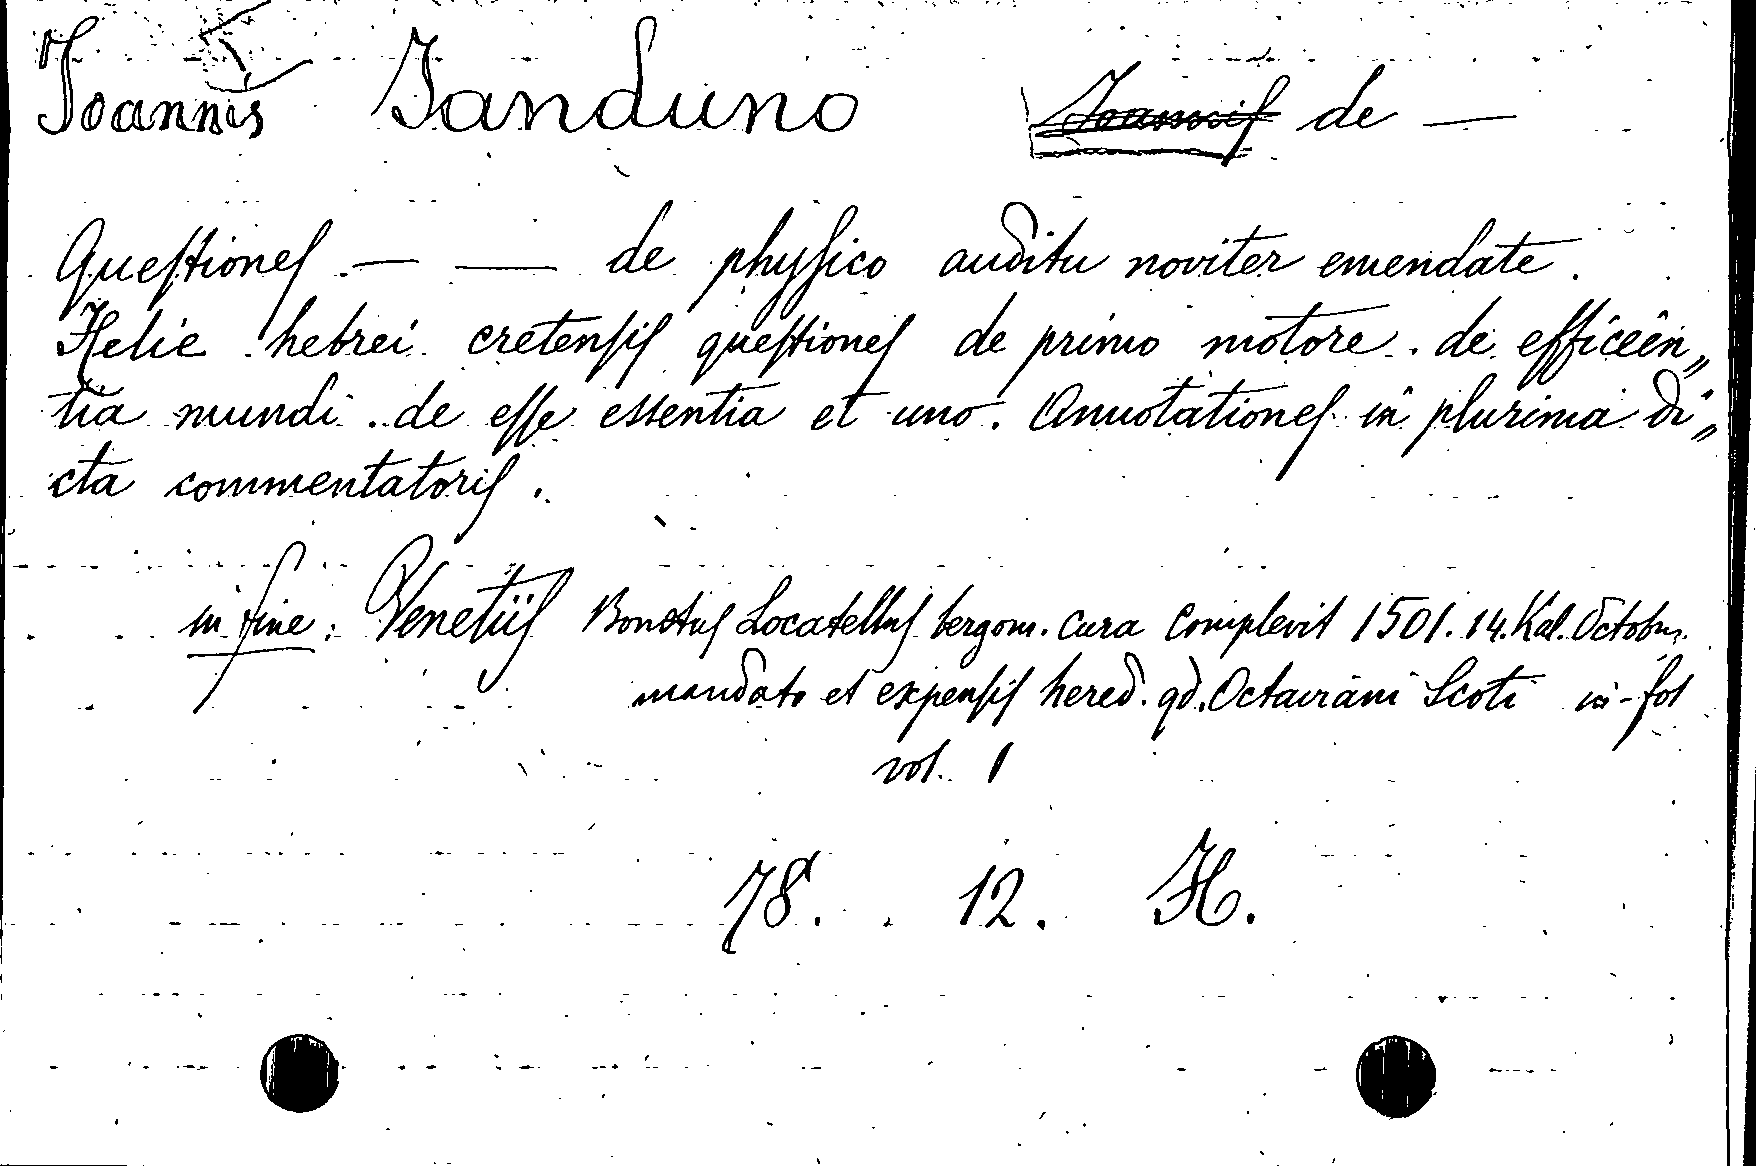 Joannis Janduno Joannis de —
Questiones — — de physico auditu noviter emendate.
Helie hebrei cretensis questiones de primo motore. de efficeen„
tia mundi. de esse essentia et uno. Annotationes in plurima di„
cta commentatoris.
in fine: Venetiis Bonetus Locatellus bergom. cura complevit 1501. 14. Kal. Octobr.
mandato et expensis hered. qd. Octaviani Scoti in-fol
vol. 1
78. 12. H.